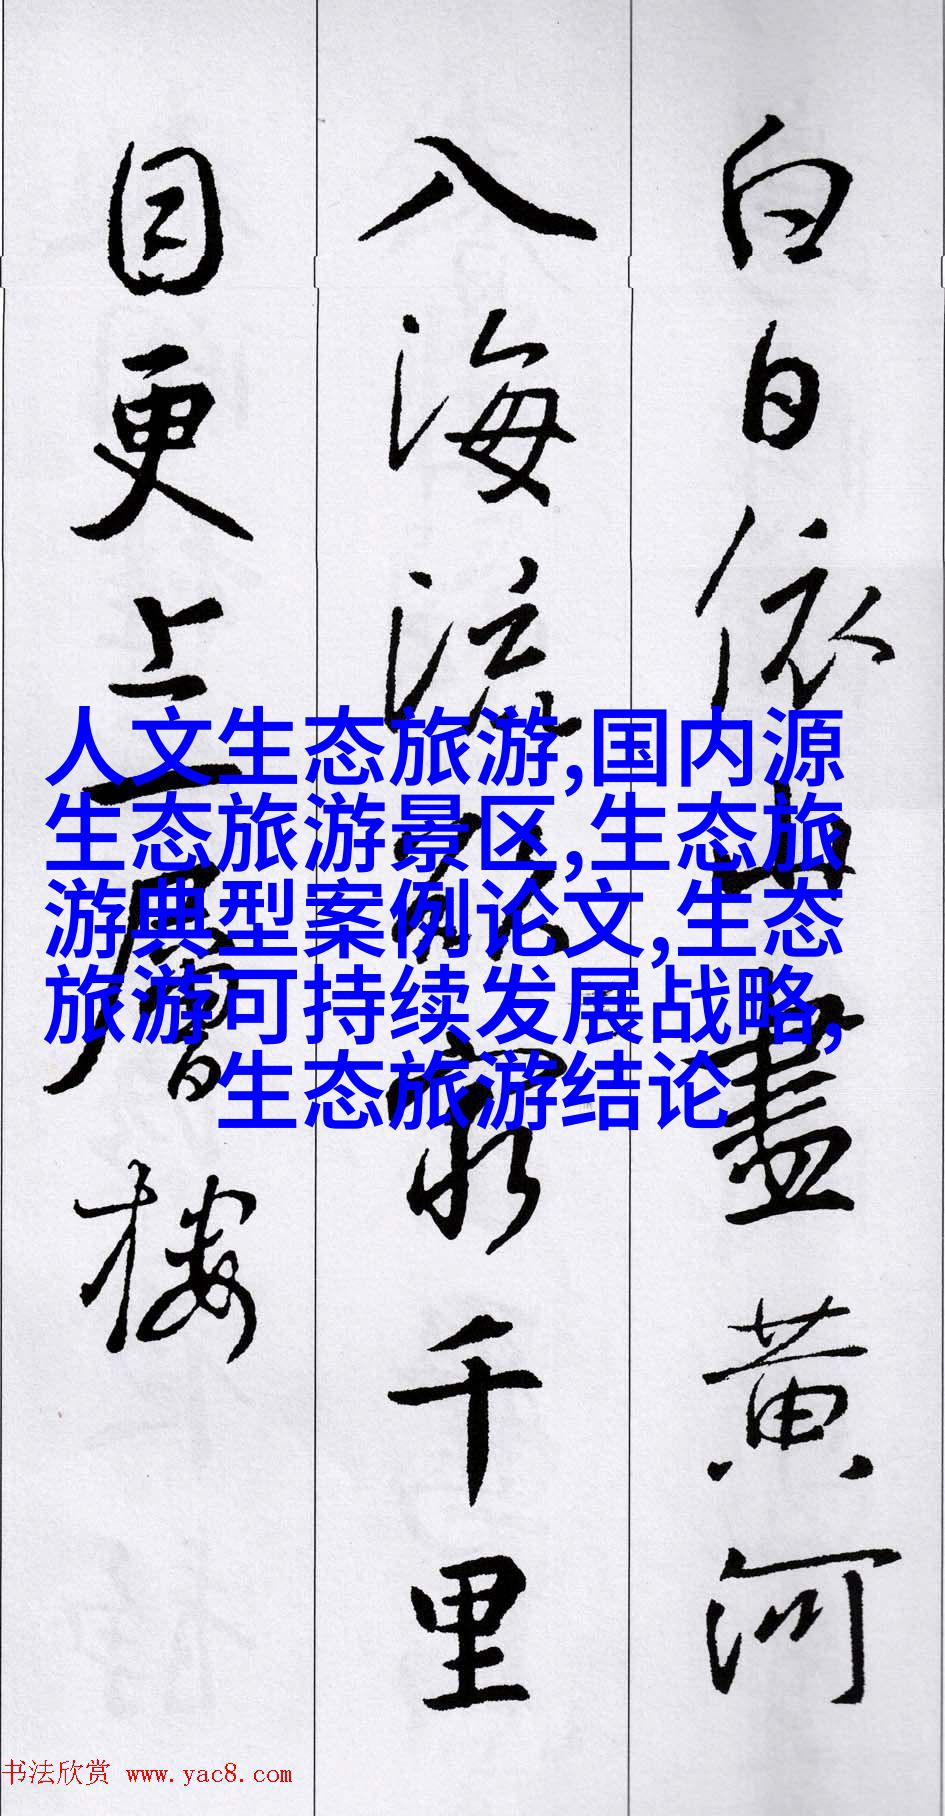 白日依山盡黄河
入海流欲窮千里
目更上一層楼
人文生态旅游,国内源
生态旅游景区,生态旅
游典型案例论文,生态
旅游可持续发展战略,
生态旅游结论
书法欣赏 www.yac8.com